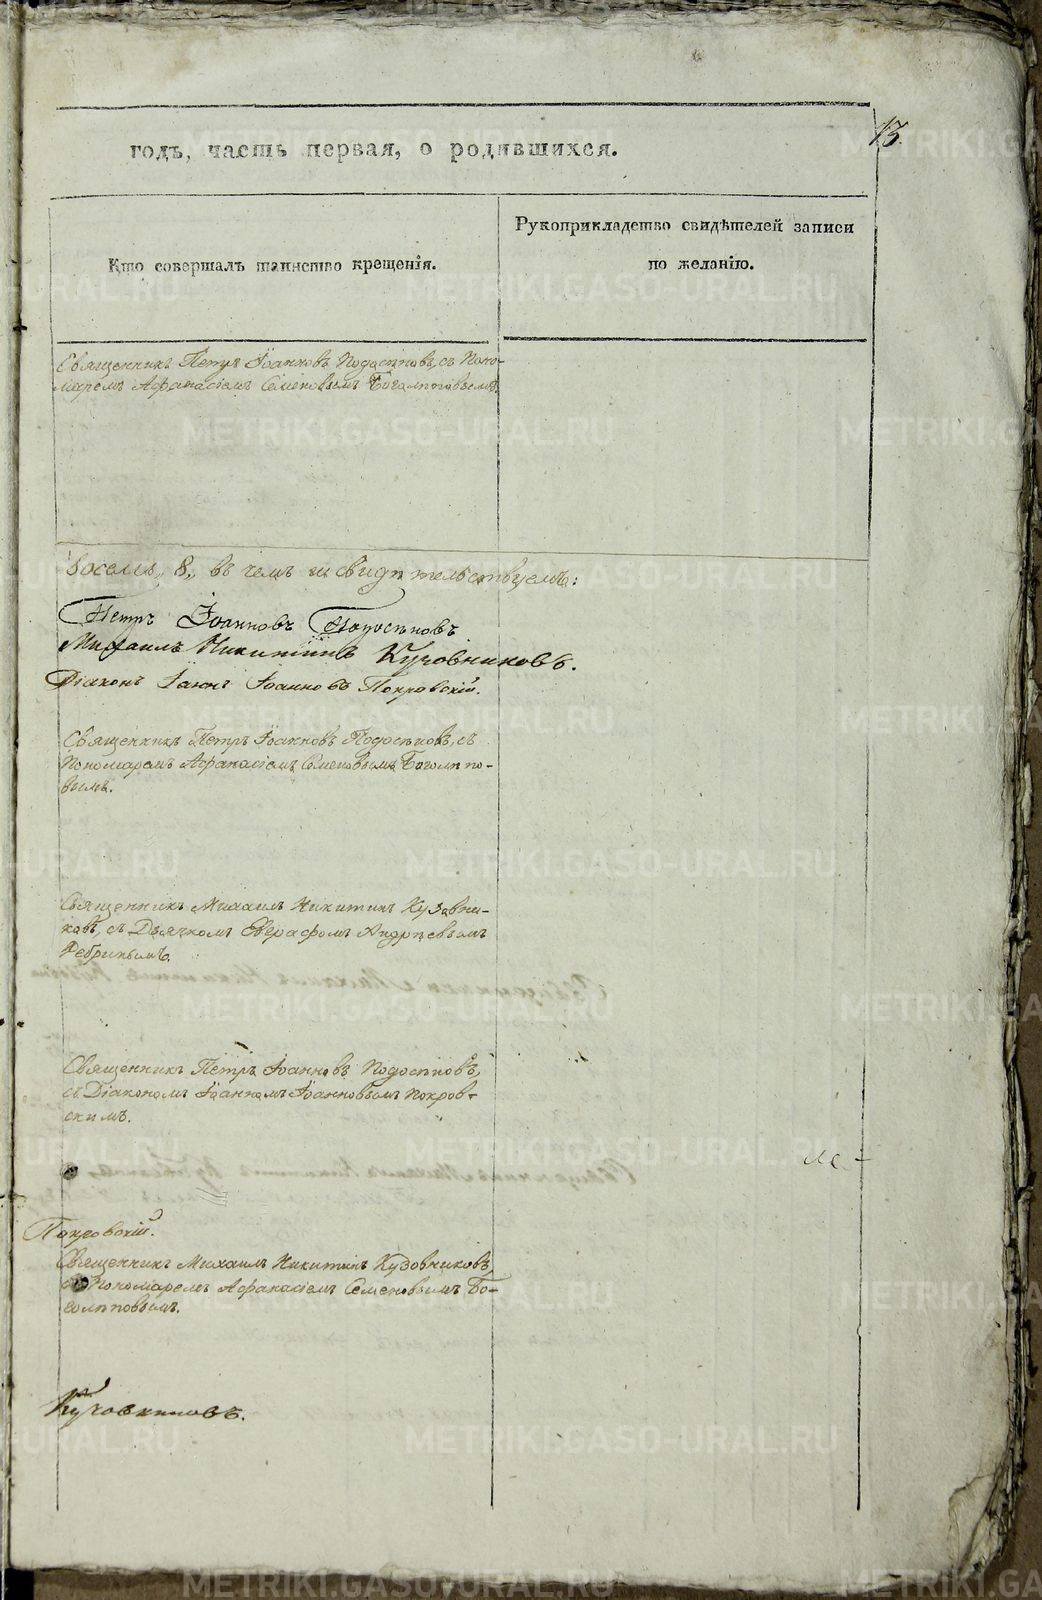 13.
годъ, часть первая, о родившихся.
Кто совершалъ таинство крещенія.
Рукоприкладство свидѣтелей записи
по желанію.
Священникъ Петръ Іоанновъ Подосѣновъ, съ Поно-
маремъ Афанасіемъ Семеновымъ Боголѣповымъ.
восемь, 8, въ чемъ и свидѣтельствуемъ:
Петръ Іоанновъ Подосѣновъ
Михаилъ Никитинъ Кузовниковъ.
Діаконъ Іоаннъ Іоанновъ Покровскій.
Священникъ Петръ Іоанновъ Подосѣновъ, съ
Пономаремъ Афанасіемъ Семеновымъ Боголѣпо-
вымъ.
Священникъ Михаилъ Никитинъ Кузовни-
ковъ, съ Дьячкомъ Андрѣевымъ
Священникъ Петръ Іоанновъ Подосѣновъ,
съ Діакономъ Іоанномъ Іоанновымъ Покров-
скимъ.
Покровскій.
Священникъ Михаилъ Никитинъ Кузовниковъ,
съ Пономаремъ Афанасіемъ Семеновымъ Бо-
голѣповымъ.
Кузовниковъ.
METRIKI.GASO-URAL.RU